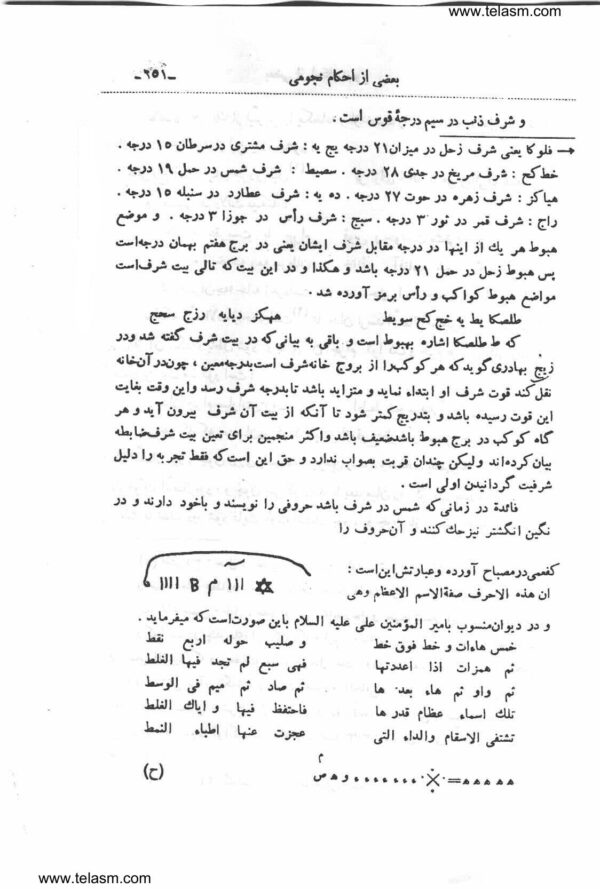 www.telasm.com
بعضی از احکام نجومی -۲۵۱-
و شرف ذنب در سیم درجهٔ قوس است.
فلوکا یعنی شرف زحل در میزان ۲۱ درجه یج یه : شرف مشتری در سرطان ۱۵ درجه .
خط کح : شرف مریخ در جدی ۲۸ درجه . سصیط : شرف شمس در حمل ۱۹ درجه .
هیاکز : شرف زهره در حوت ۲۷ درجه . ده یه : شرف عطارد در سنبله ۱۵ درجه .
راج : شرف قمر در ثور ۳ درجه . سبج : شرف رأس در جوزا ۳ درجه . و موضع
هبوط هر یك از اینها در درجه مقابل شرف ایشان یعنی در برج هفتم بهمان درجه است
پس هبوط زحل در حمل ۲۱ درجه باشد و هکذا و در این بیت که تالی بیت شرف است
مواضع هبوط کواکب و رأس برمز آورده شد .
طلصکا یط یه خج کح سویط ههکز دیایه رزج سحج
که ط طلصکا اشاره بهبوط است و باقی به بیانی که در بیت شرف گفته شد ودر
زیج بهادری گوید که هر کوکب را از بروج خانه شرف است بدرجه معین ، چون در آن خانه
نقل کند قوت شرف او ابتداء نماید و متزاید باشد تا بدرجه شرف رسد و این وقت بغایت
این قوت رسیده باشد و بتدریج کمتر شود تا آنکه از بیت آن شرف بیرون آید و هر
گاه کوکب در برج هبوط باشد ضعیف باشد و اکثر منجمین برای تعین بیت شرف ضابطه
بیان کرده اند ولیکن چندان قربت بصواب ندارد و حق این است که فقط تجربه را دلیل
شرفیت گردانیدن اولی است .
فائدة در زمانی که شمس در شرف باشد حروفی را نویسند و با خود دارند و در
نگین انگشتر نیز حك کنند و آن حروف را
کفعمی در مصباح آورده و عبارتش این است :
ان هذه الاحرف صفة الاسم الاعظم وهی
و در دیوان منسوب بامیر المؤمنین علی علیه السلام باین صورت است که میفرماید .
خمس هاءات و خط فوق خط و صلیب حوله اربع نقط
ثم همزات اذا اعددتها فهی سبع لم تجد فیها الغلط
ثم واو ثم هاء بعد ها ثم صاد ثم میم فی الوسط
تلك اسماء عظام قدرها فاحتفظ فیها و ایاك الغلط
تشتفی الاسقام والداء التی عجزت عنها اطباء النمط
ه ه ه ه ه = ※ ء ء ء ء ء ء ء و ه ص م (ح)
www.telasm.com